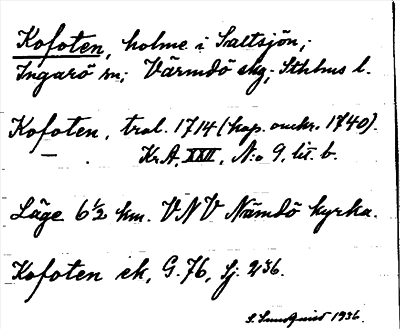 Kofoten, holme i Saltsjön,;
Ingarö sn; Värmdö skg; Sthlms l.
Kofoten, tral. 1714 (kop. omkr. 1740).
Kr.A, XXII, N:o 9, lit. b.
Läge 6½ km. VNV Nämdö kyrka.
Kofoten ek, G. 76, Sj. 236.
S. Lundquist 1936.